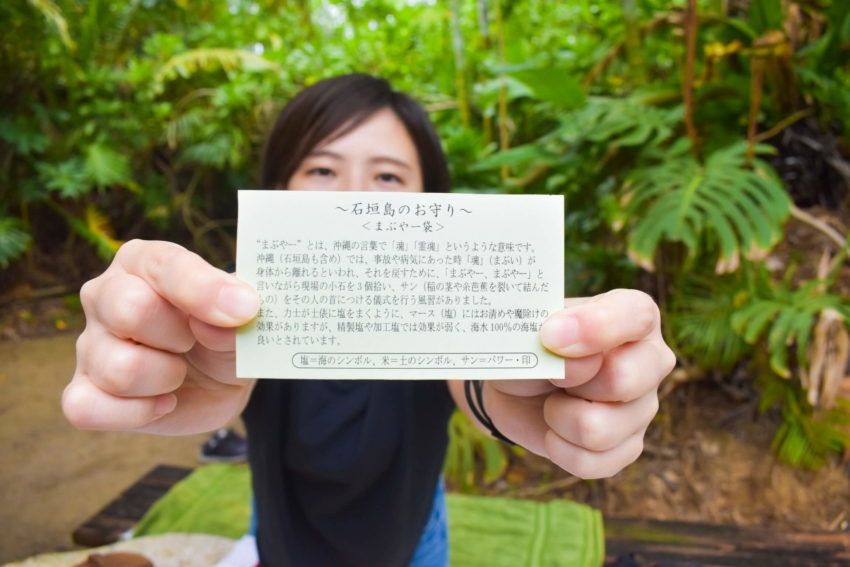 ～石垣島のお守り～
＜まぶやー袋＞
"まぶやー" とは、沖縄の言葉で「魂」「霊魂」というような意味です。
沖縄（石垣島も含め）では、事故や病気にあった時「魂」（まぶい）が
身体から離れるといわれ、それを戻すために、「まぶやー、まぶやー」と
言いながら現場の小石を3個拾い、サン（稲の茎や糸芭蕉を裂いて結んだ
もの）をその人の首につける儀式を行う風習がありました。
また、力士が土俵に塩をまくように、マース（塩）にはお清めや魔除けの
効果がありますが、精製塩や加工塩では効果が弱く、海水100％の海塩が
良いとされています。
塩＝海のシンボル、米＝土のシンボル、サン＝パワー・印